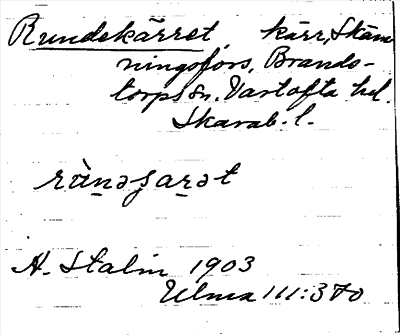 Rundskärret, kärr, Stäm
ningsfors, Brands-
torps sn. Vartofta hd.
Skarab. l.
rùn̲əʃar̲ət
A. Stalin 1903
Ulma 111:370